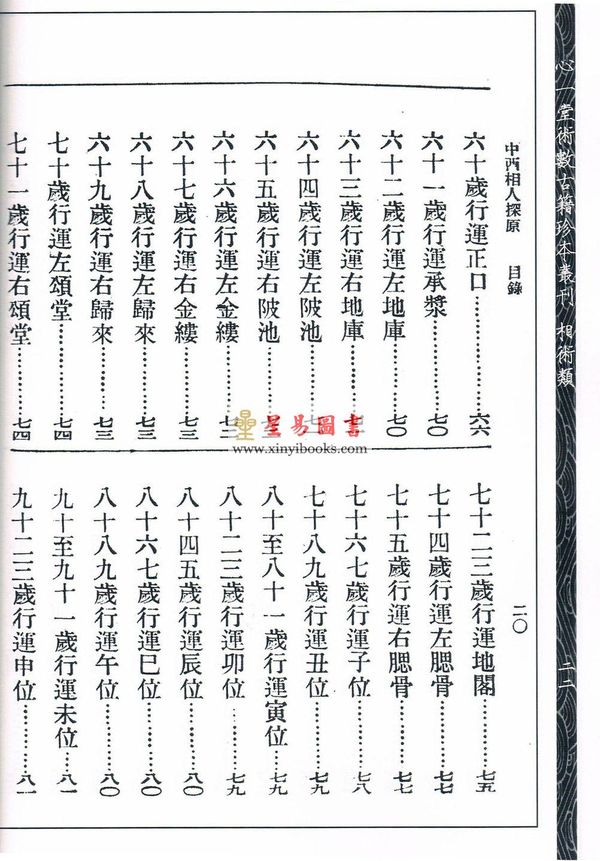 心一堂術數古籍珍本叢刊 相術類 二二
中西相人探原 目錄 二〇
六十歲行運正口………六六
六十一歲行運承漿………七〇
六十二歲行運左地庫………七〇
六十三歲行運右地庫………
六十四歲行運左陂池………
六十五歲行運右陂池………
六十六歲行運左金縷………七二
六十七歲行運右金縷………七三
六十八歲行運左歸來………七三
六十九歲行運右歸來………七三
七十歲行運左頌堂………七四
七十一歲行運右頌堂………七四
七十二三歲行運地閣………七五
七十四歲行運左腮骨………七七
七十五歲行運右腮骨………七七
七十六七歲行運子位………七八
七十八九歲行運丑位………七九
八十至八十一歲行運寅位………七九
八十二三歲行運卯位………七九
八十四五歲行運辰位………八〇
八十六七歲行運巳位………八〇
八十八九歲行運午位………八〇
九十至九十一歲行運未位………八一
九十二三歲行運申位………八一
星易圖書
www.xinyibooks.com